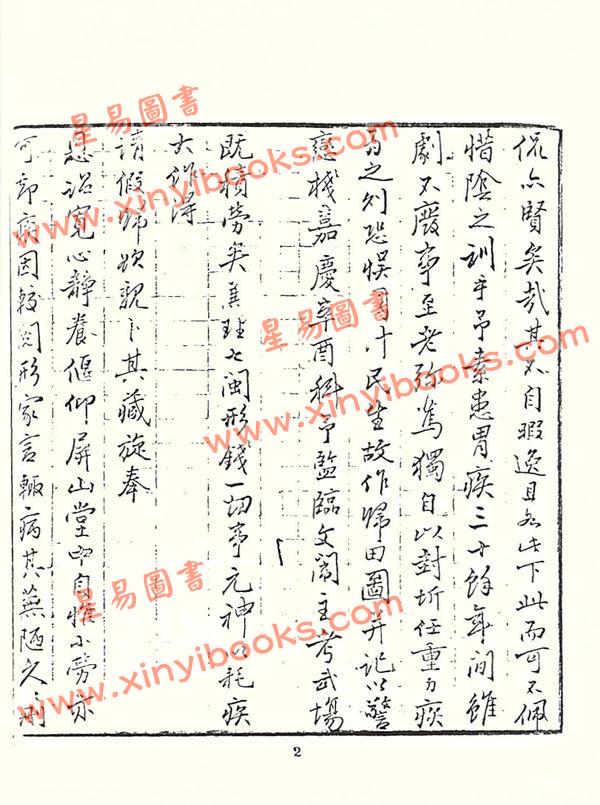 侃亦賢矣哉其不自暇逸且如此下此而可不佩
惜陰之訓乎予素患胃疾三十餘年間雖
劇不廢事至老弥篤獨自以封圻任重力疾
為之則恐悞國計民生故作歸田圖并記以警
戀棧嘉慶辛酉科予監臨文闈主考武場
既積勞矣
閩形錢一切事元神以耗疾
大作得
請假歸
其藏旋奉
恩詔寬心靜養偃仰屏山堂中自惟小旁亦
可却病因較閱形家言輒病其蕪陋久之則
星易圖書
www.xinyibooks.com
星易圖書
www.xinyibooks.com
星易圖書
www.xinyibooks.com
2